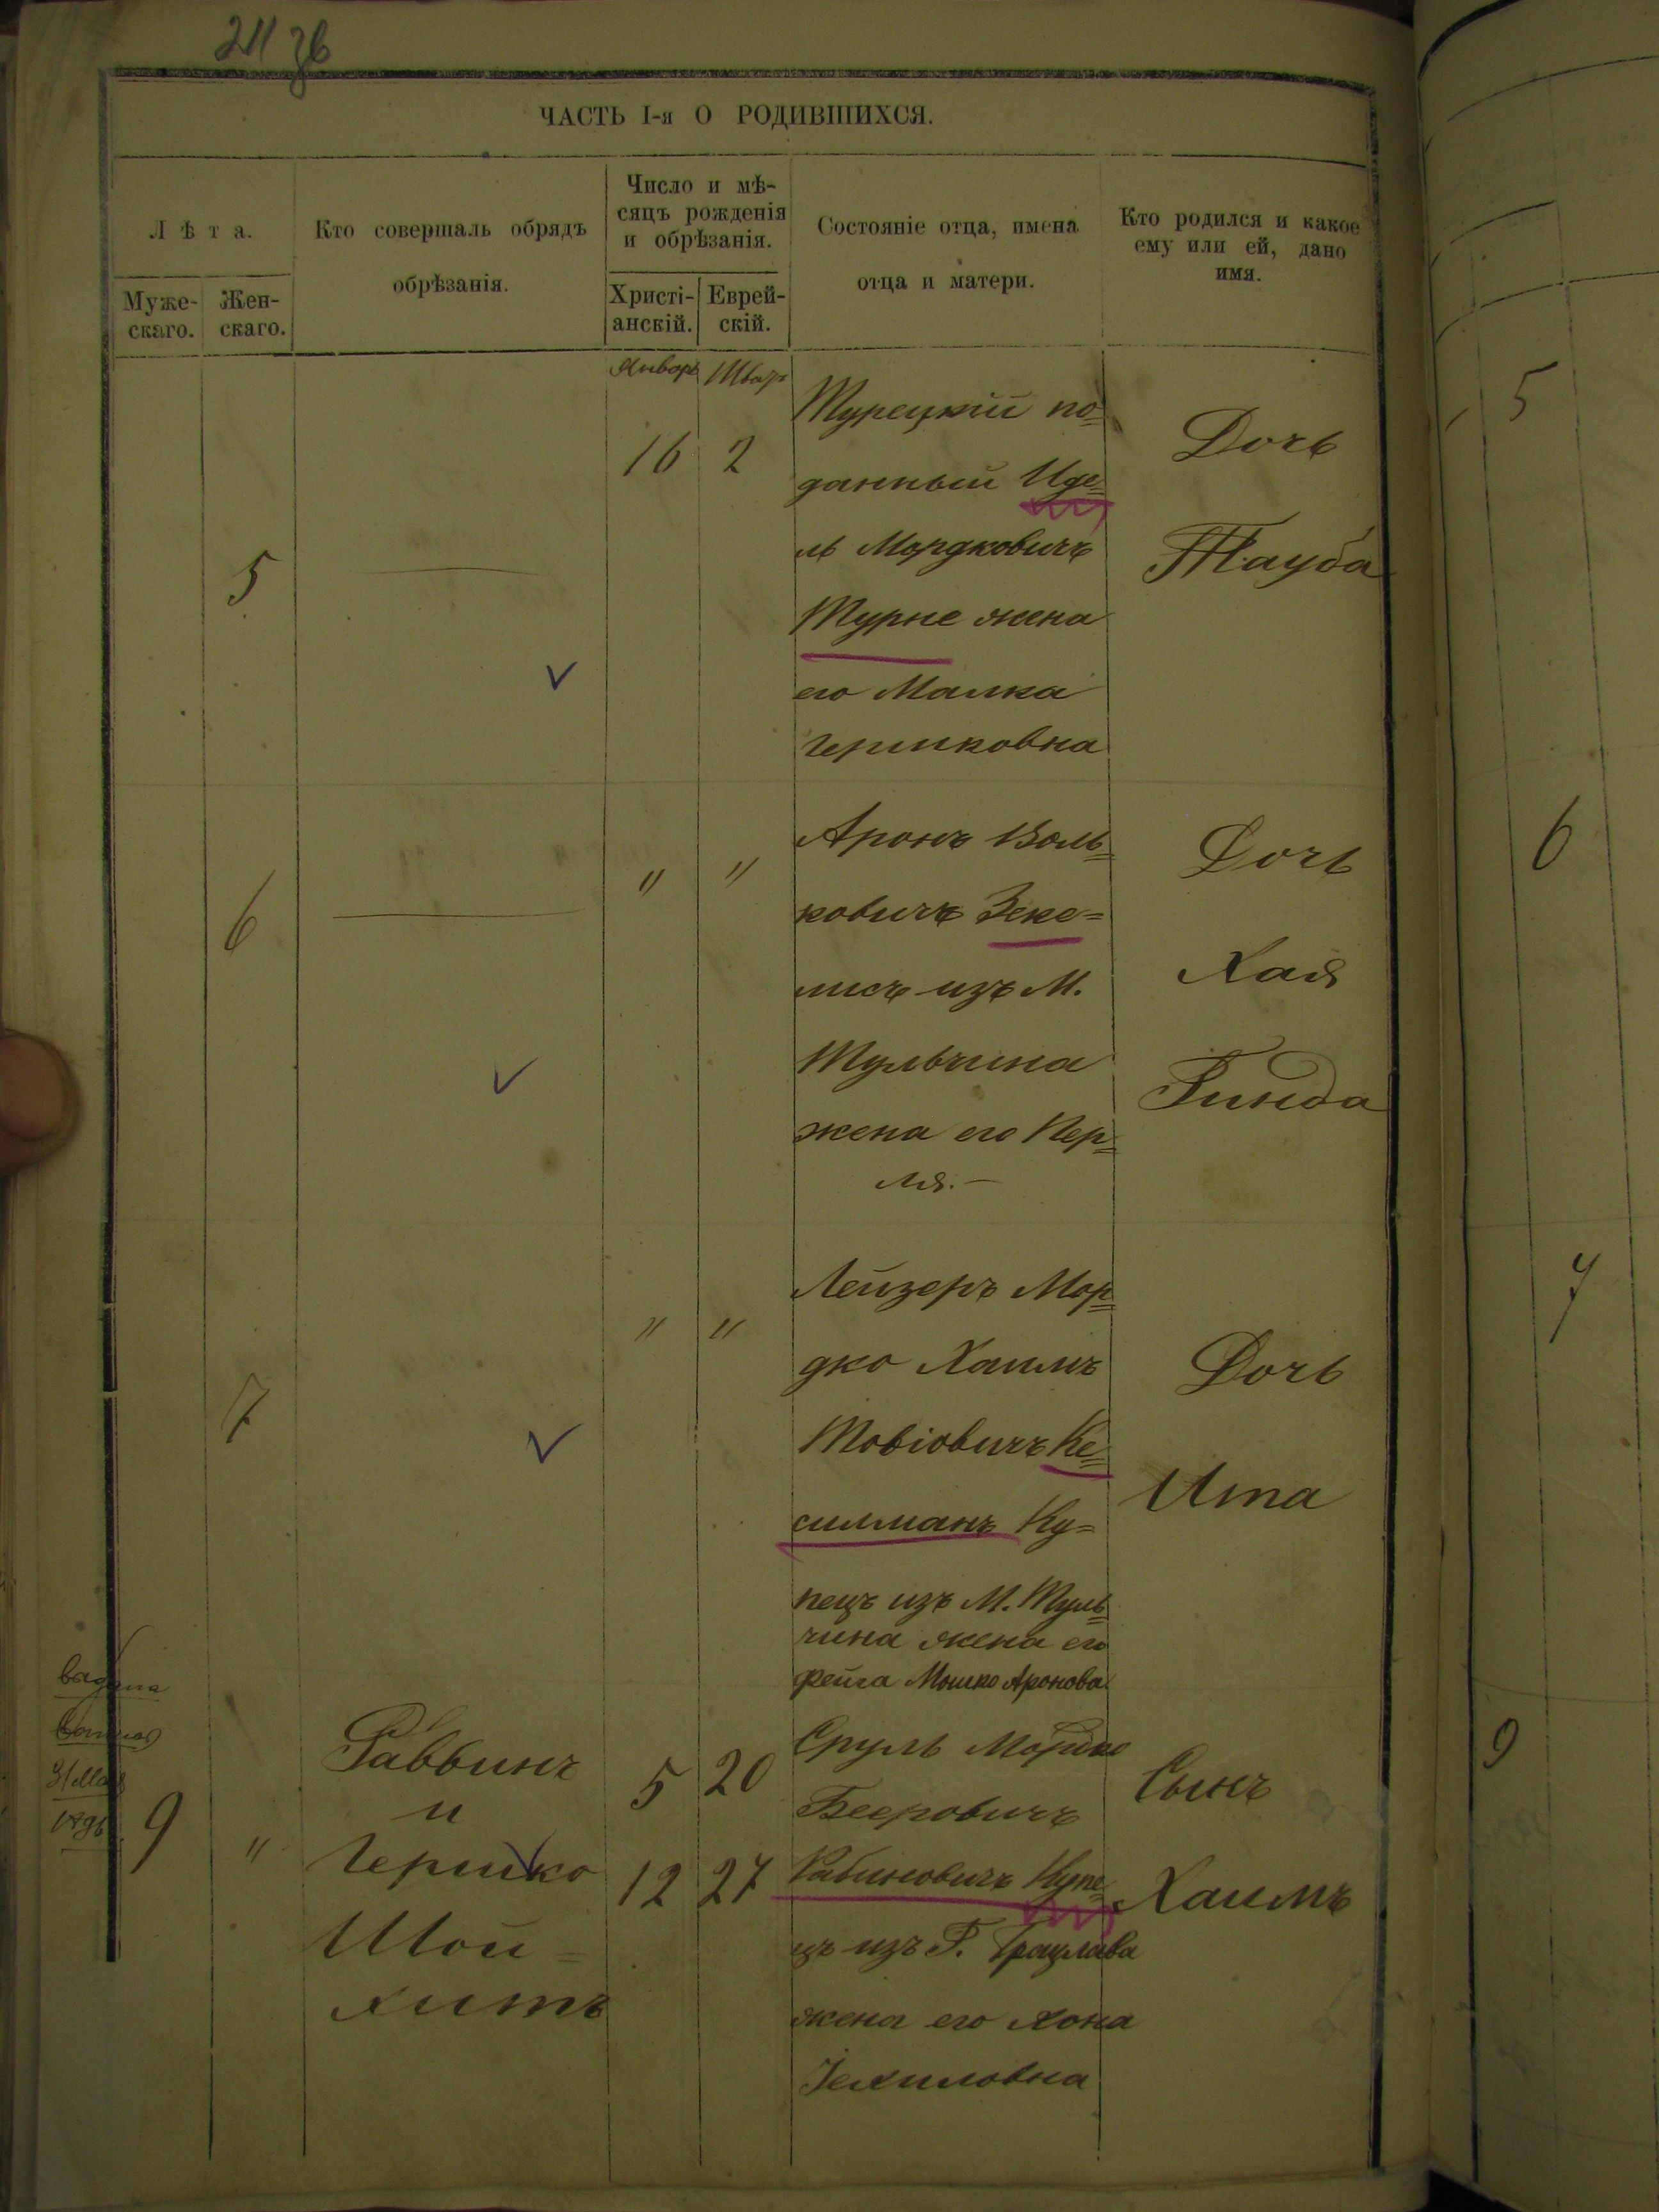 211 зв
ЧАСТЬ I-я О РОДИВШИХСЯ.
Лѣта.
Муже-
скаго.
Жен-
скаго.
Кто совершаль обрядъ
обрѣзанія.
Число и мѣ-
сяцъ рожденія
и обрѣзанія.
Христі-
анскій.
Еврей-
скій.
Состояніе отца, имена
отца и матери.
Кто родился и какое
ему или ей, дано
имя.
Январь
5
16 2
Турецкій по=
данный Иде=
ль Мордковичъ
Турне жена
его Малка
Гершковна
Дочь
Тауба
5
6
" "
Аронъ Воль=
ковичъ Зеке=
лисъ изъ М.
Тульчина
жена его Пер=
ля.—
Дочь
Хая
Гинда
6
7
" "
Лейзеръ Мор=
дко Хаимъ
Товіовичъ Ке=
силманъ Ку=
пецъ изъ М. Туль=
чина жена его
Фейга Мошко Аронова
Дочь
Ита
7
1896
9
"
Раввинъ
и
Гершко
Шой=
хитъ
5 20
12 27
Сруль Мордко
Беровичъ
Рабиновичъ Купе=
цъ изъ Г. Брацлава
жена его Хона
Іехиловна
Сынъ
Хаимъ
9